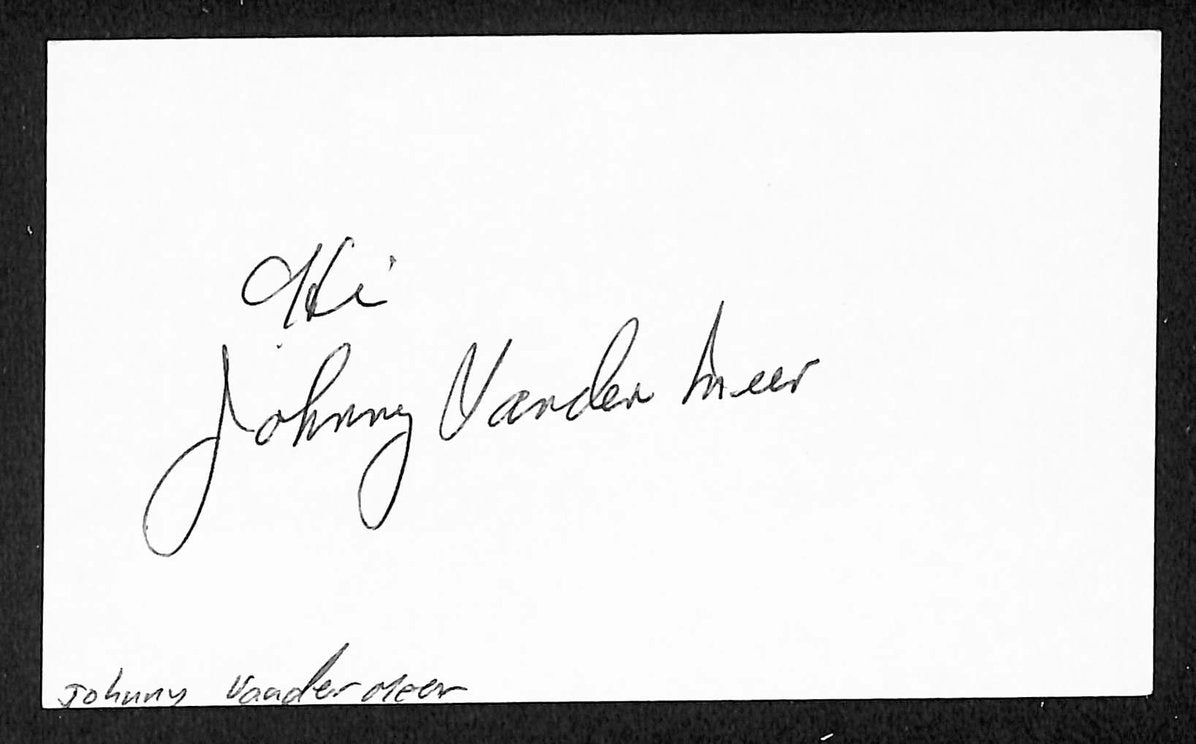 Hi
Johnny Vander Meer
Johnny Vander Meer